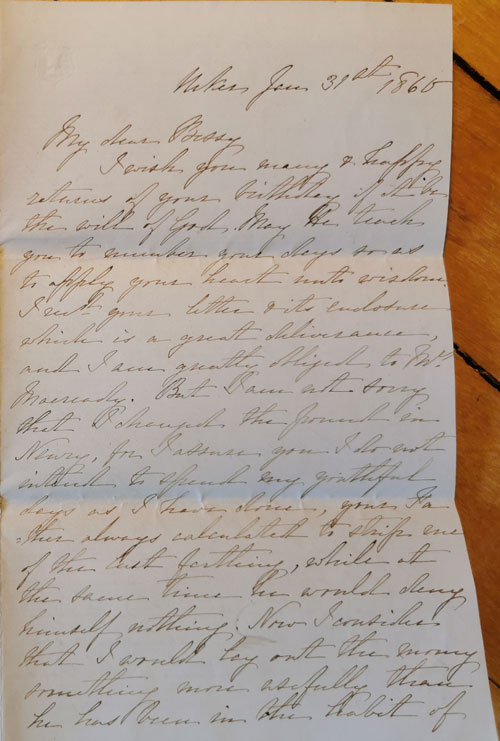 Jan 31st 1860
My dear Bessy
I wish you many & happy
returns of your birthday if it be
the will of God. May He teach
you to number your days so as
to apply your heart unto wisdom.
I rec'd your letter & its enclosure
which is a great deliverance,
and I am greatly obliged to Mr.
Macready. But I am not sorry
that I changed the pound in
Newry, for I assure you I do not
intend to spend my youthful
days as I have done, your Fa
=ther always calculated to strip me
of the last farthing, while at
the same time he would deny
himself nothing. Now I consider
that I would lay out the money
something more usefully than
he has been in the habit of